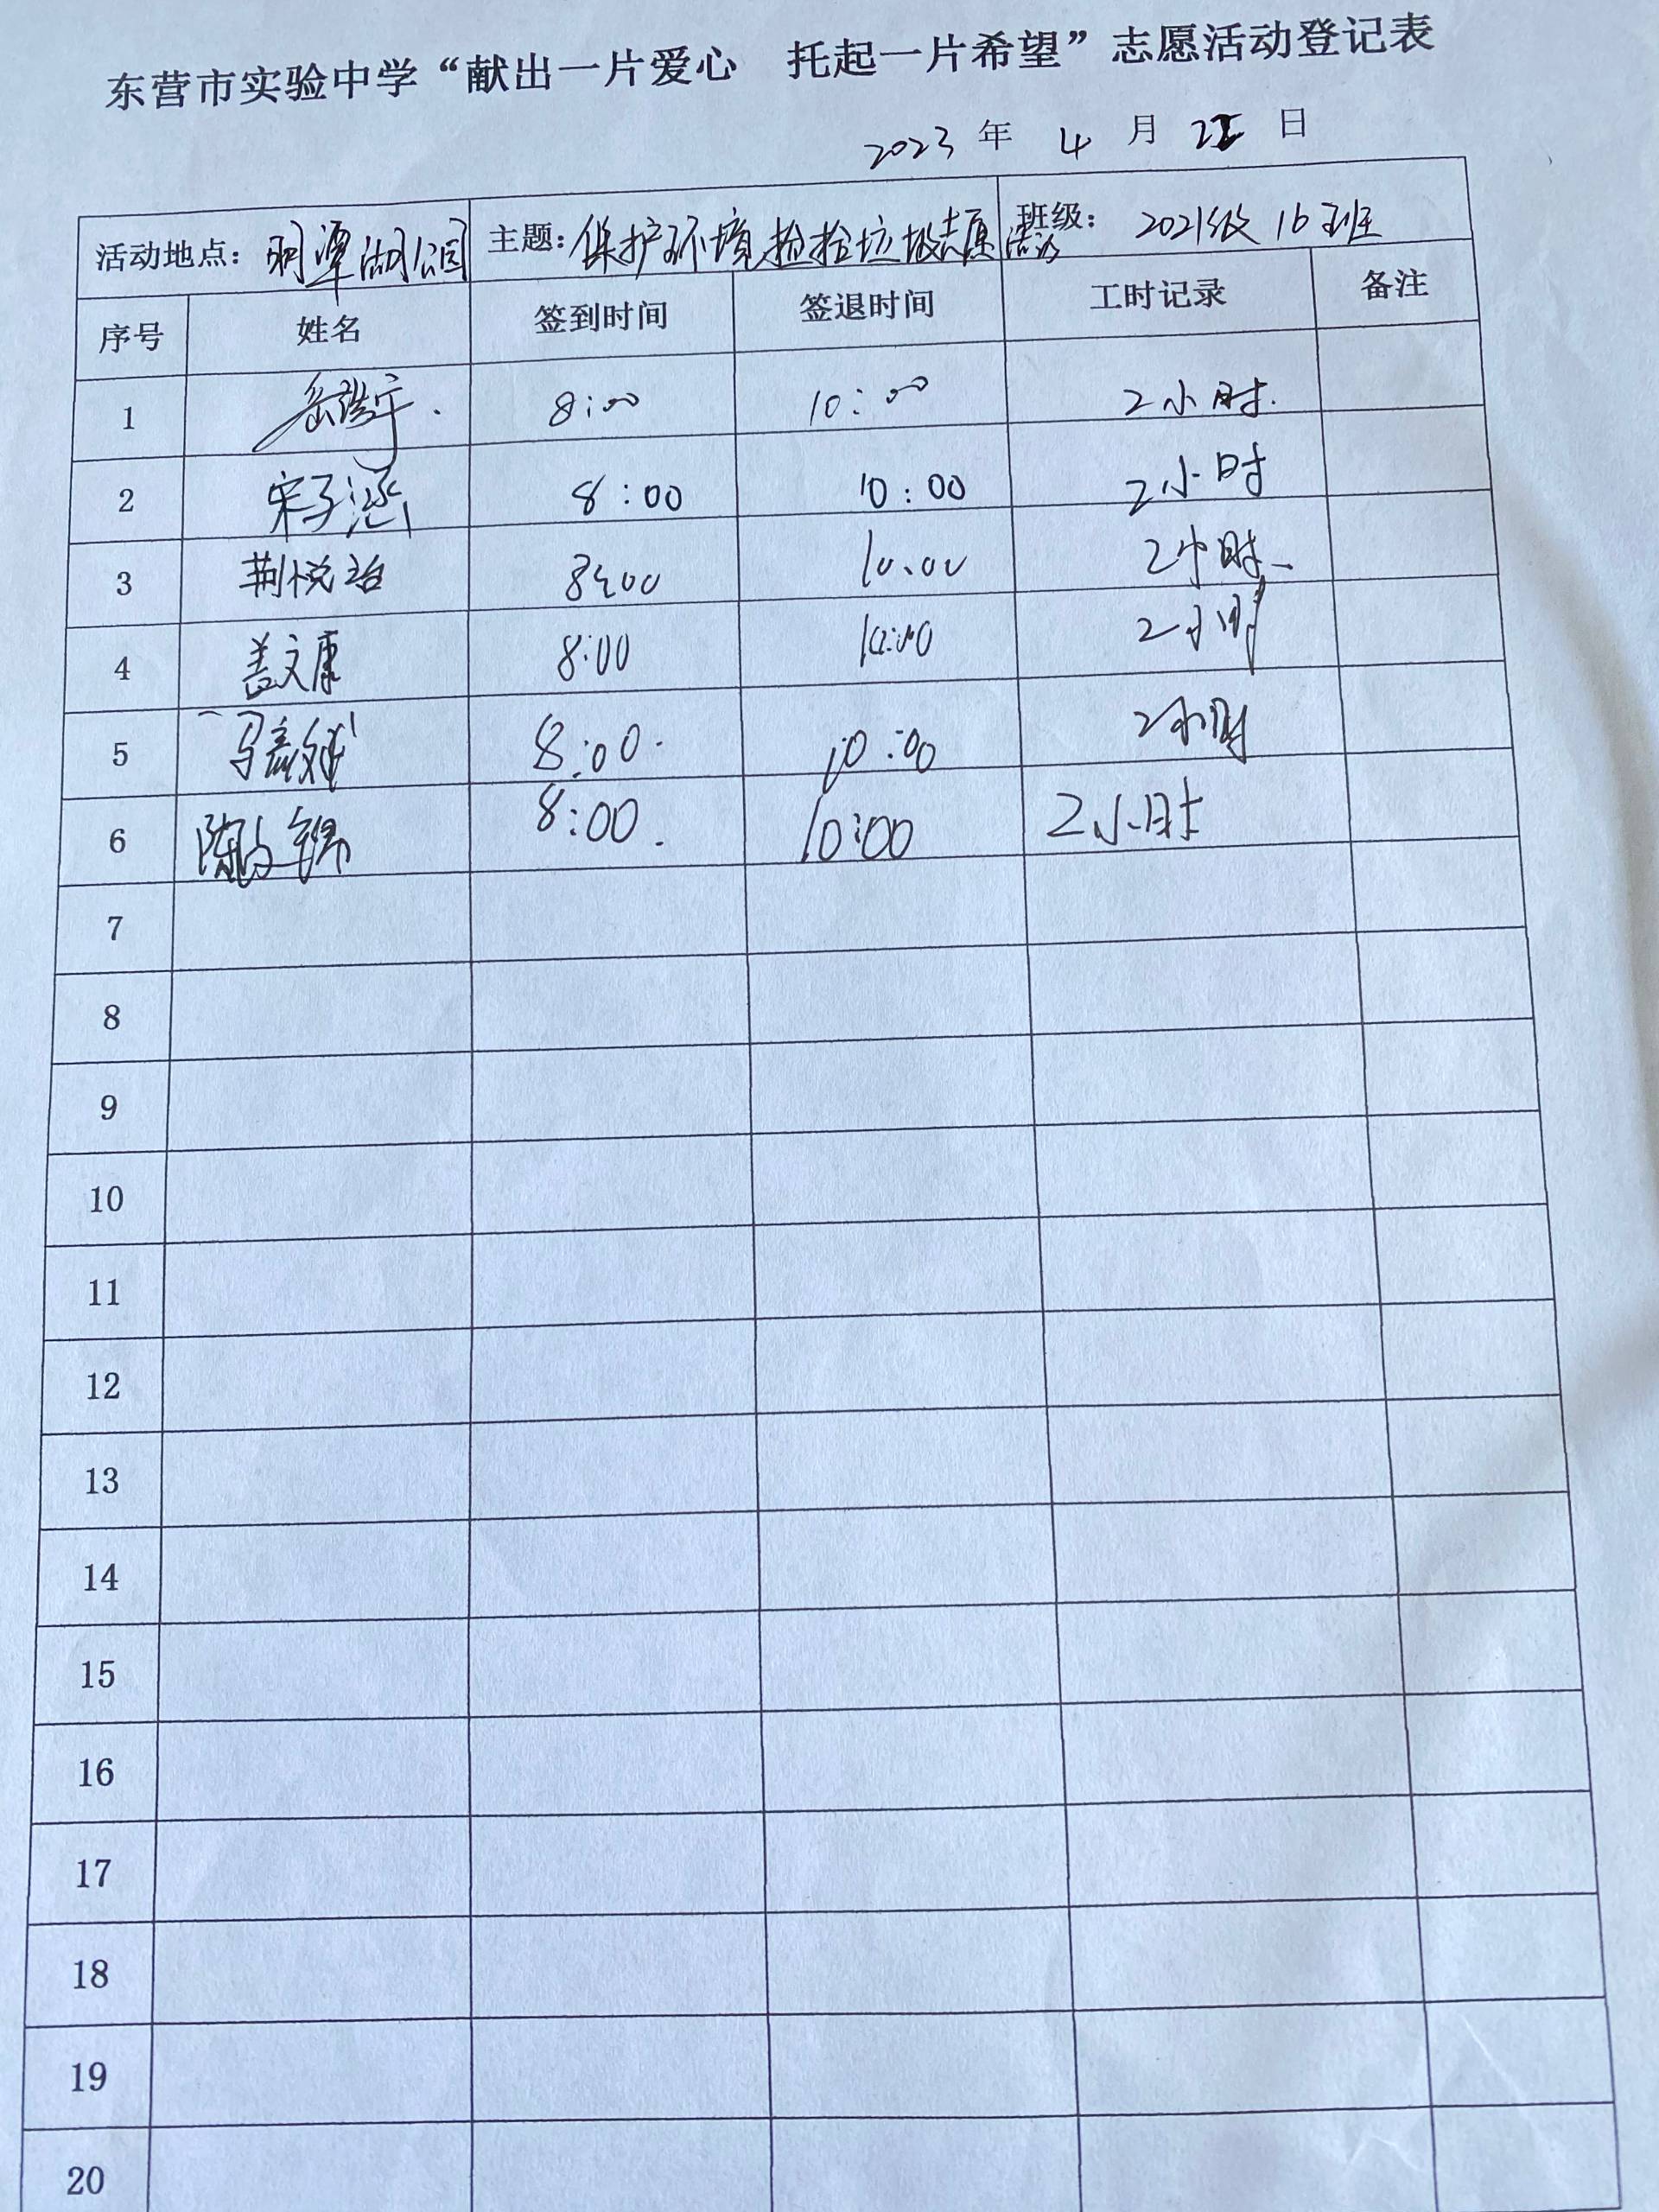 东营市实验中学“献出一片爱心 托起一片希望”志愿活动登记表
2023 年 4 月 日
活动地点：明潭湖公园 主题：保护环境捡拾垃圾志愿活动 班级： 2021级 16班
序号 姓名 签到时间 签退时间 工时记录 备注
1 岳浩宇 8:00 10:00 2小时.
2 宋子涵 8:00 10:00 2小时
3 荆悦治 8:00 10:00 2小时
4 盖文康 8:00 10:00 2小时
5 马 8:00 10:00 2小时
6 陈 锦 8:00 10:00 2小时
7
8
9
10
11
12
13
14
15
16
17
18
19
20